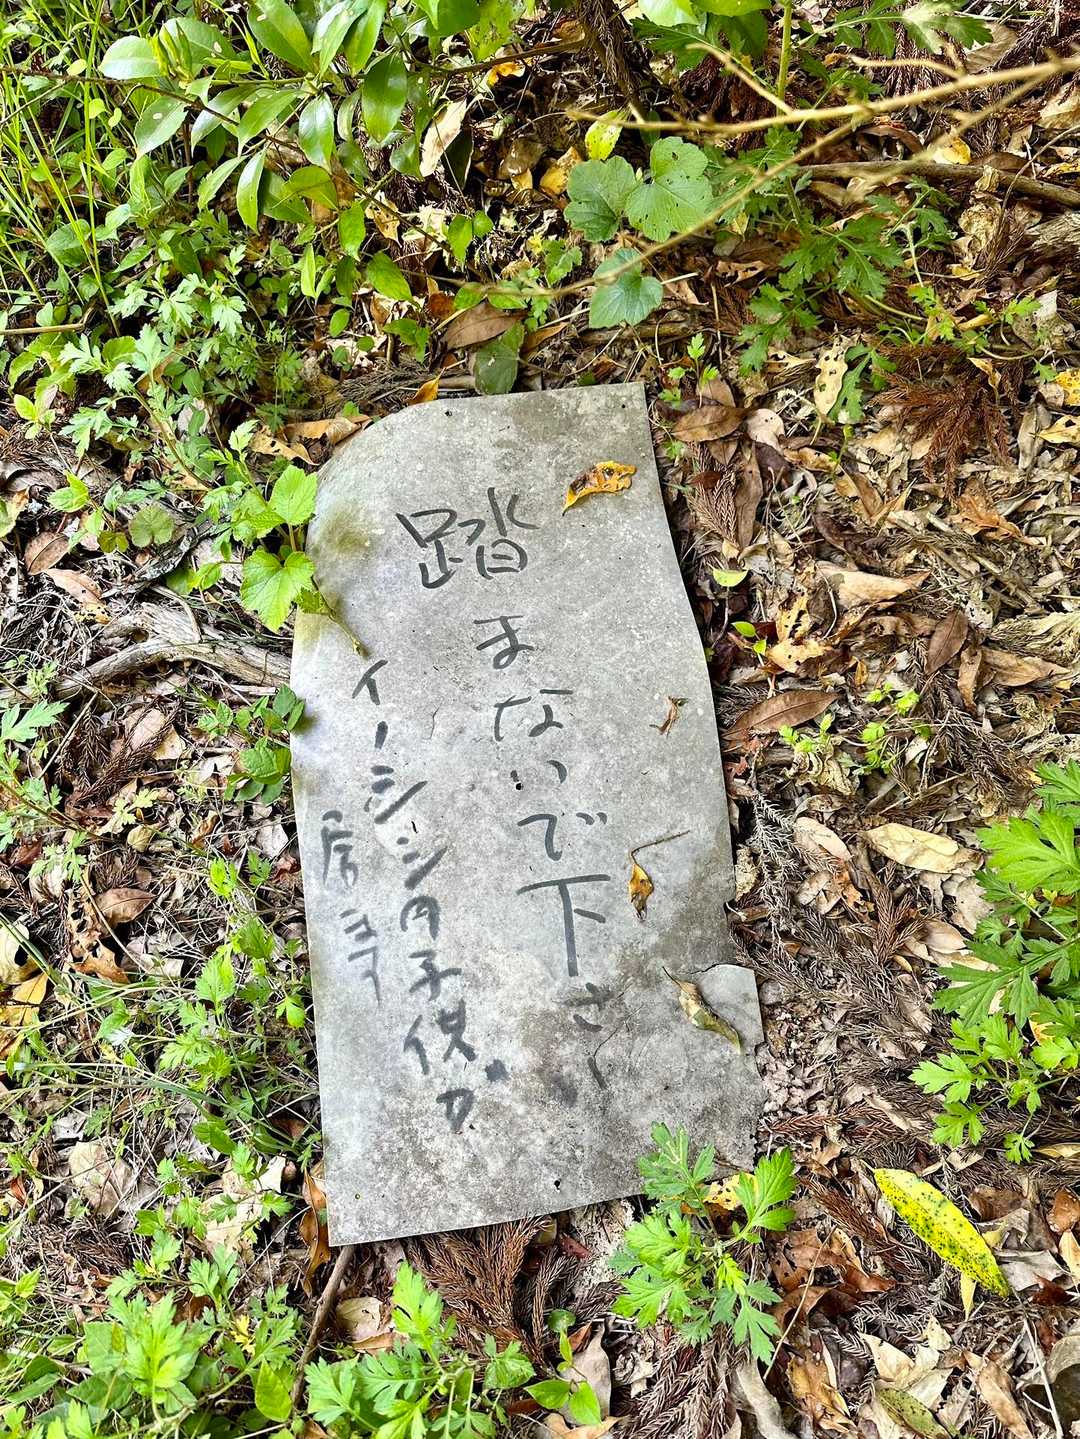 踏まないで下さい
イノシシの子供が
居ます